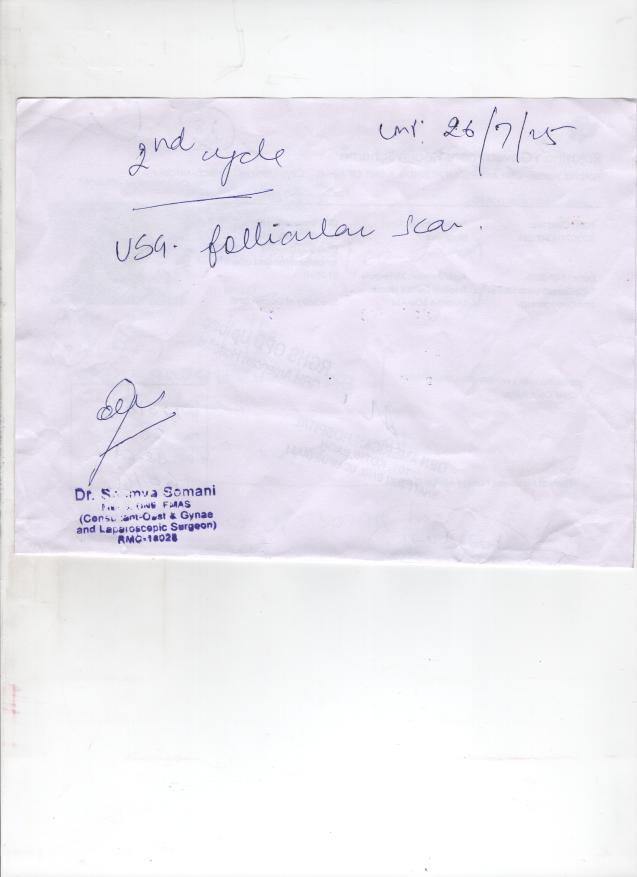 2nd cycle
LMP: 26/7/25
USG. follicular scan.
Dr. Somani
FMAS
(Consultant-Obst & Gynae
and Laparoscopic Surgeon)
RMC-18028